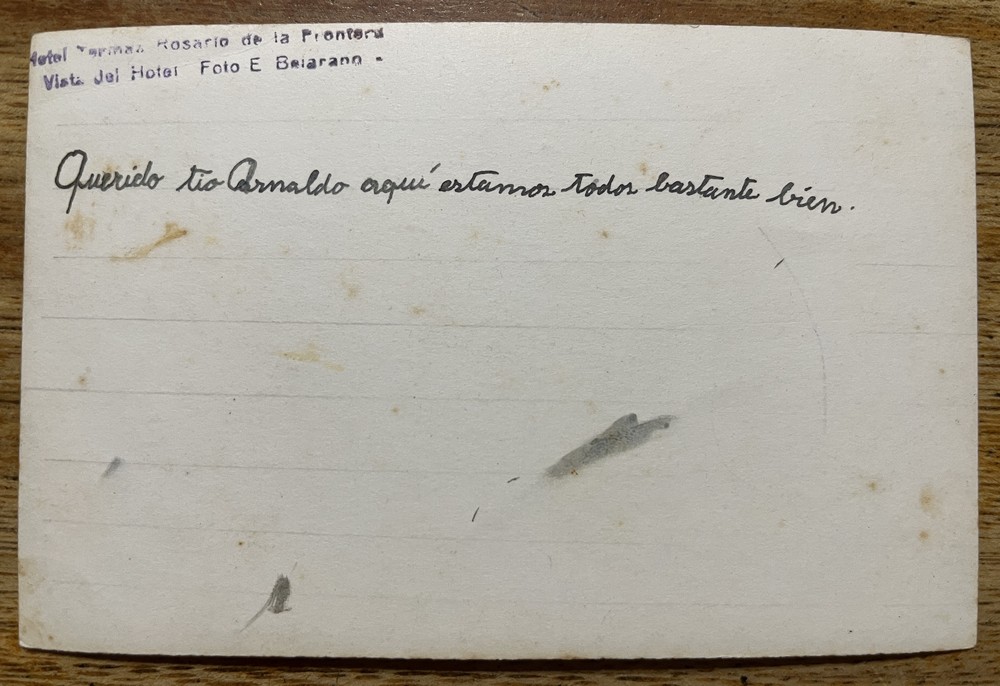 Hotel Termas Rosario de la Frontera
Vista del Hotel Foto E Bejarano -
Querido tio Arnaldo aquí estamos todos bastante bien.